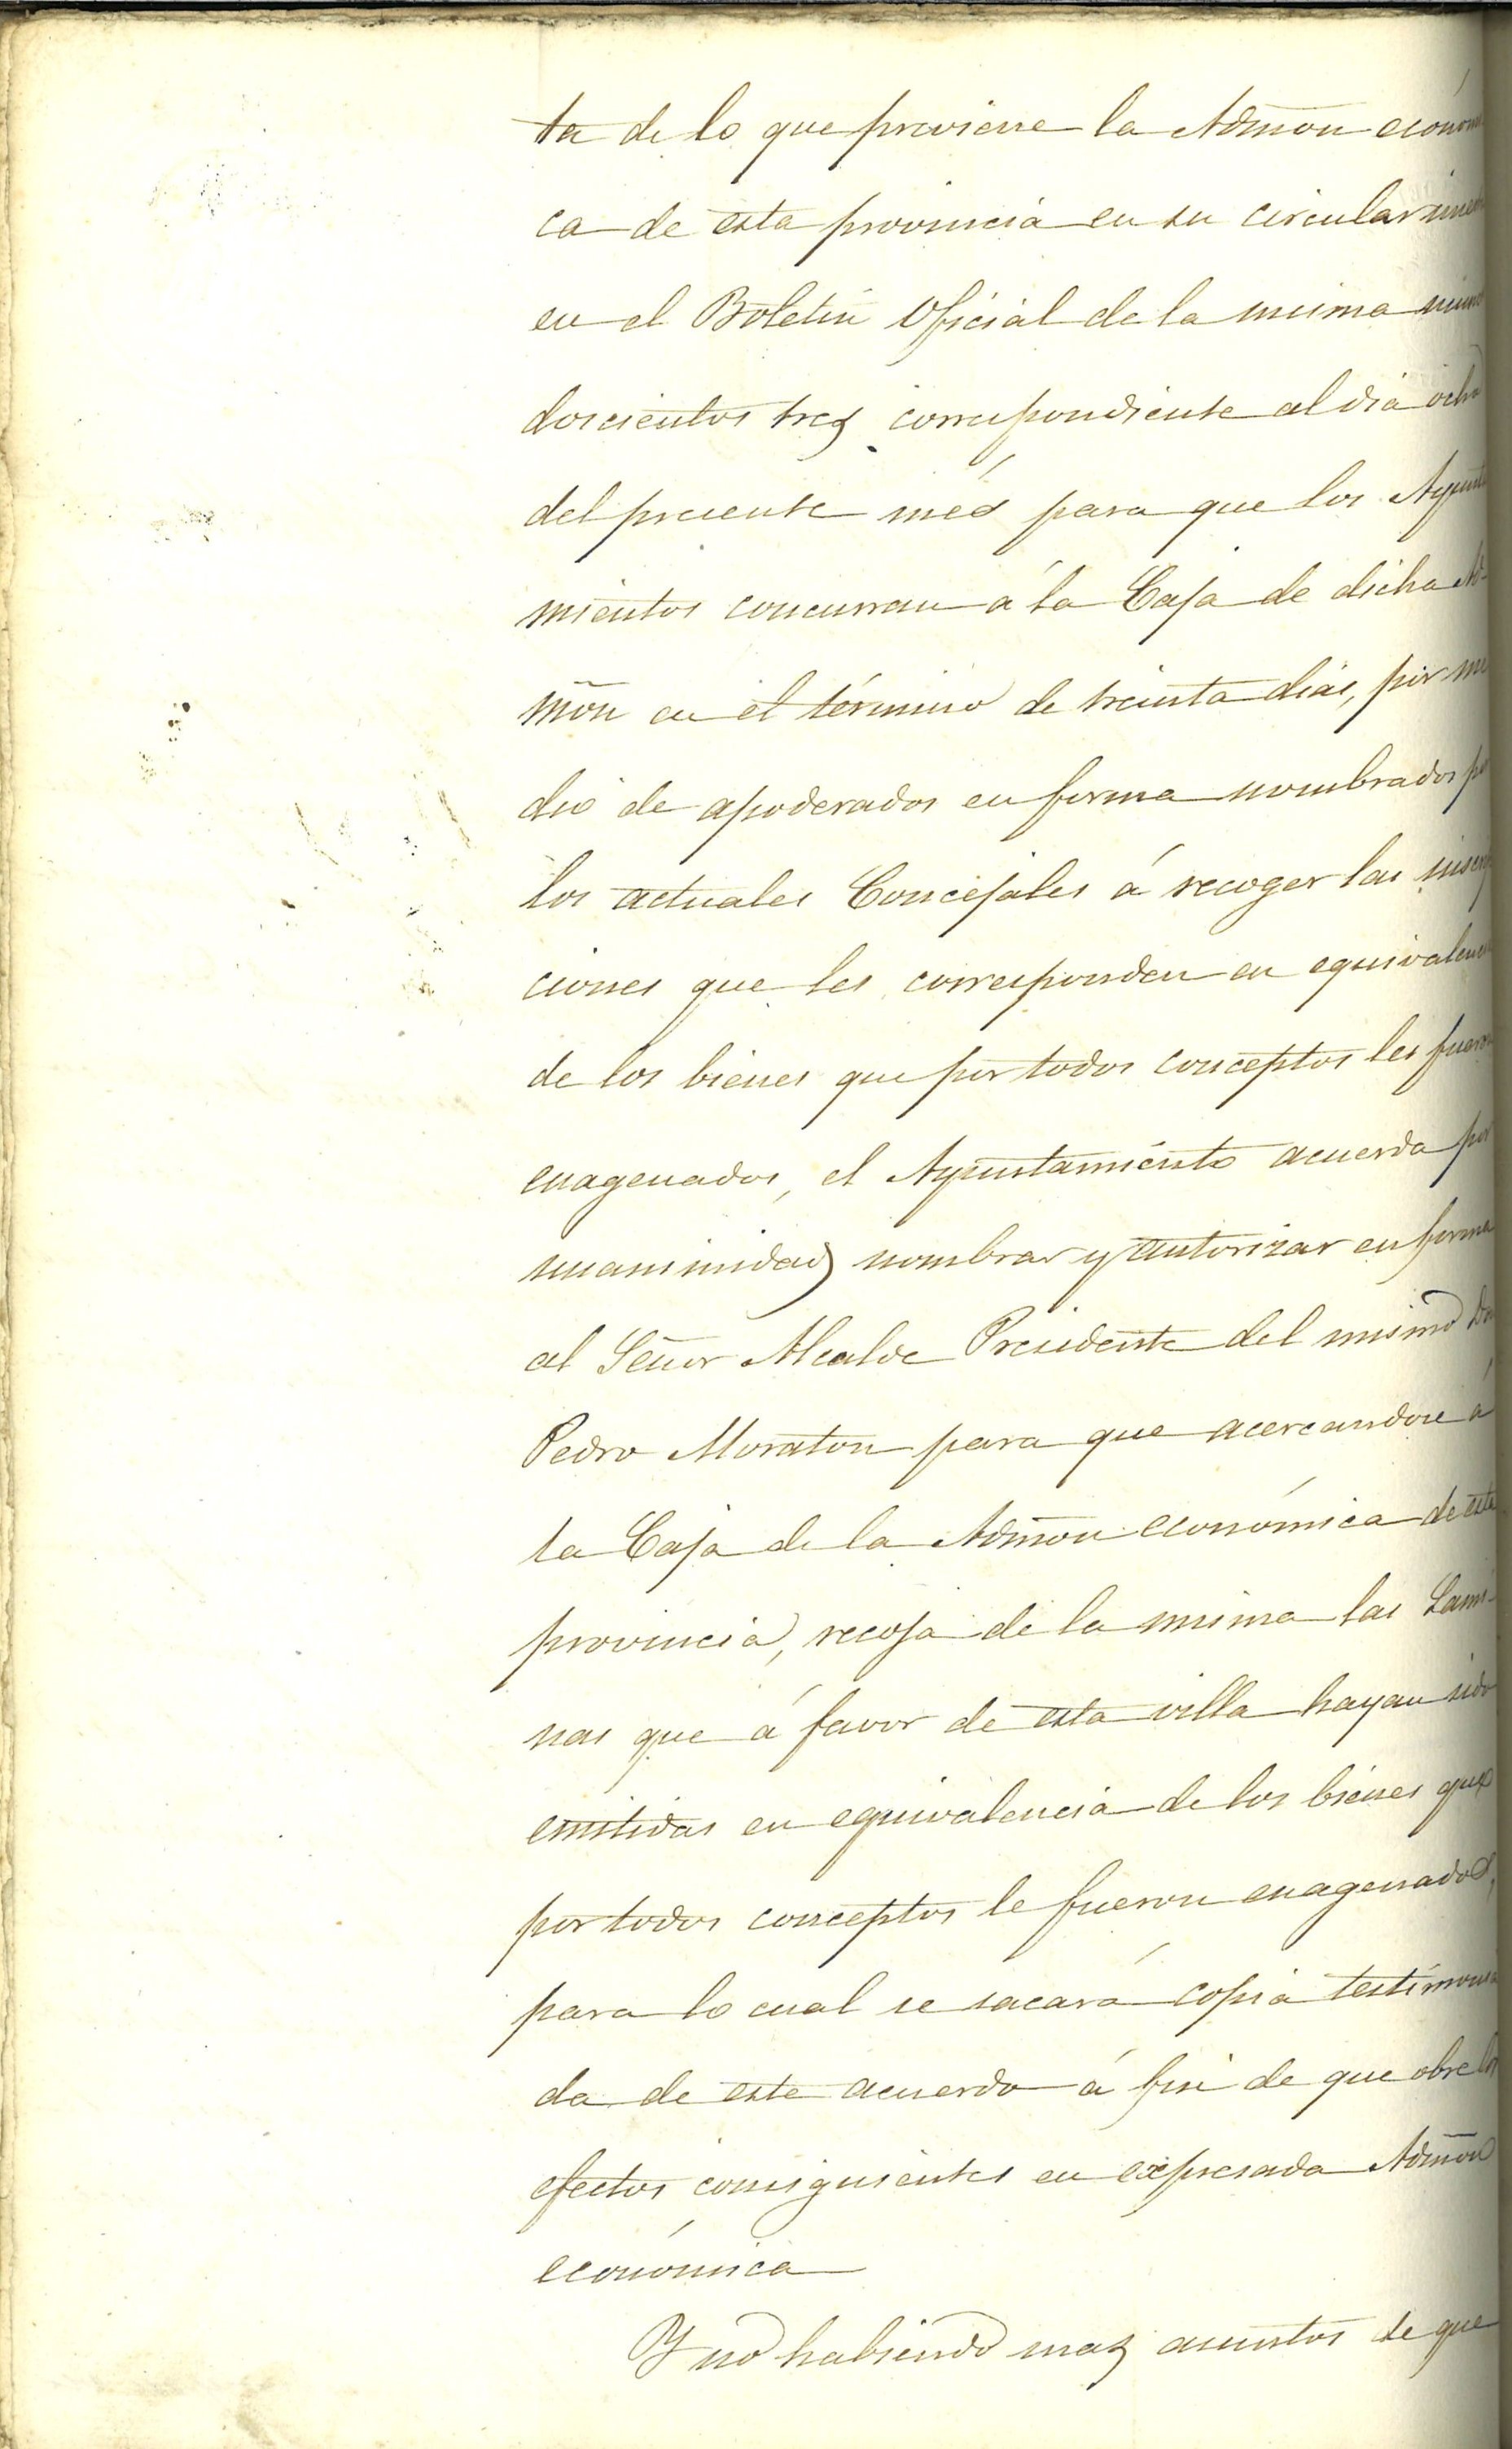 ta de lo que previene la Admon económi
ca de esta provincia en su circular inserta
en el Boletin Oficial de la misma
doscientos tres correspondiente al dia ocho
del presente més para que los Ayunta
mientos concurran á la Caja de dicha Ad-
mõn en el término de treinta dias, por me
dio de apoderados en forma nombrados por
los actuales Concejales á recoger las inscrip
ciones que les corresponden en equivalencia
de los bienes que por todos conceptos les fueron
enagenados, el Ayuntamiento acuerda por
unanimidad nombrar y autorizar en forma
al Señor Alcalde Presidente del mismo Don
Pedro Moraton para que acercandose á
la Caja de la Admõn económica de esta
provincia, recoja de la misma las Lami-
nas que á favor de esta villa hayan sido
emitidas en equivalencia de los bienes que
por todos conceptos le fueron enagenados,
para lo cual se sacará copia testimonia
da de este acuerdo á fin de que obre los
efectos consiguientes en expresada Admõn
económica
Y no habiendo mas asuntos de que